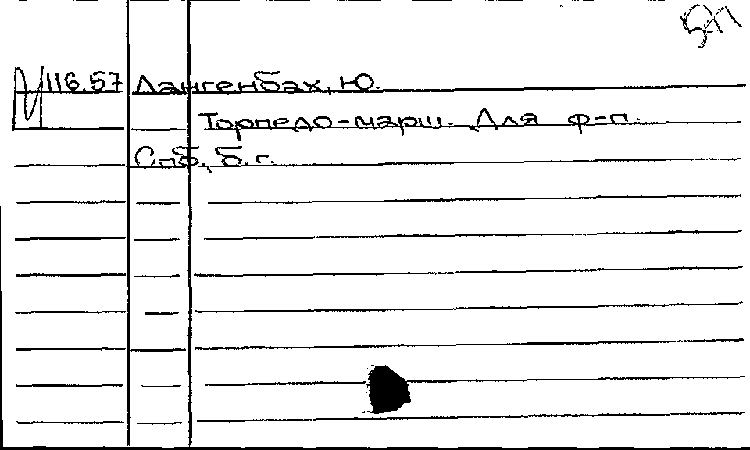 5-п
И116.57 Лангенбах, Ю.
Торпедо-марш. Для ф-п.
Спб, б. г.